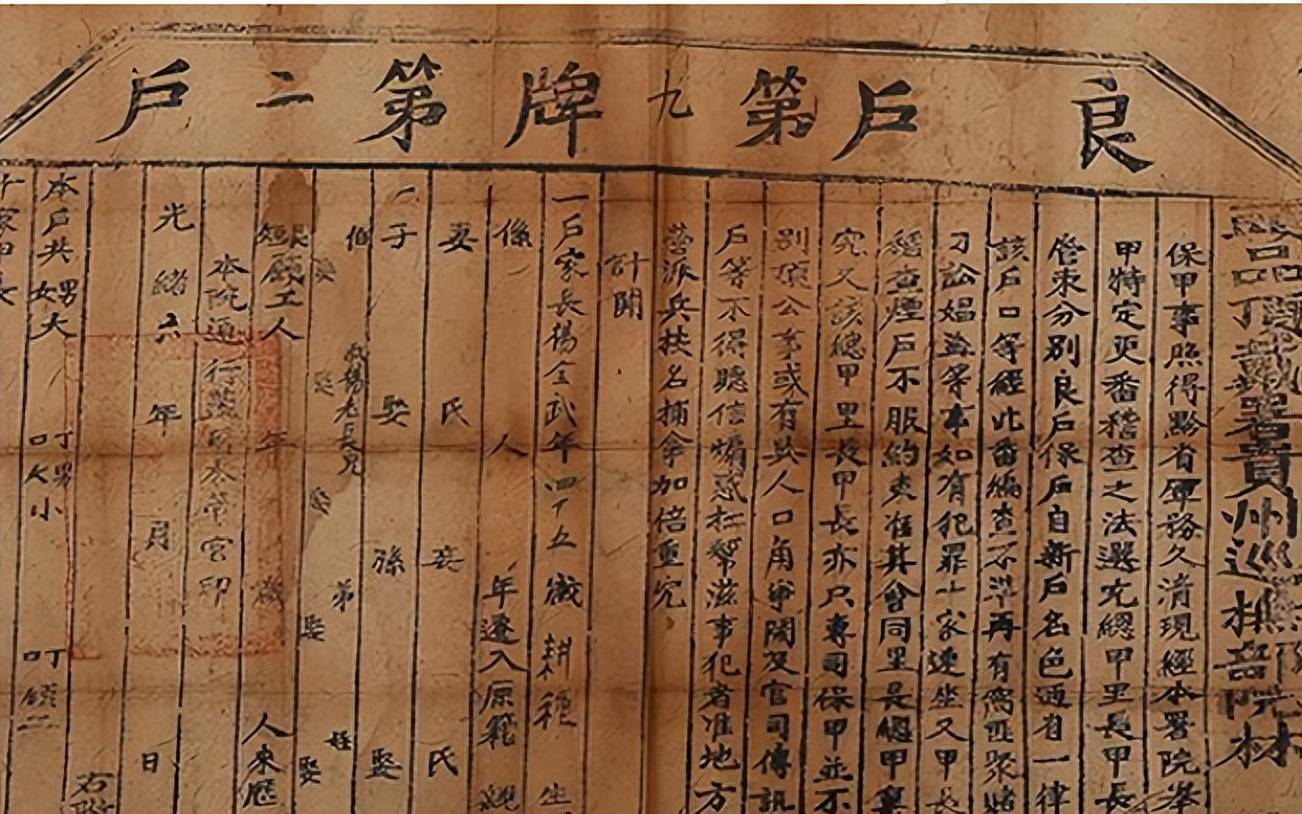 良戶第九牌第二戶
品頂戴署貴州巡撫部院林
保甲事照得黔省軍務久清現經本署院舉
甲特定更番稽查之法選充總甲里長甲長
管束分別良戶保戶自新戶名色通省一律
該戶口等經此番編查不準再有窩匪聚賭
刁訟娼盜等事如有犯罪十家連坐又甲長
稽查煙戶不服約束准其會同里長總甲稟
究又該總甲里長甲長亦只專司保甲並不
別項公事或有與人口角爭鬧及官司傳訊
戶等不得聽信煽惑扛幫滋事犯者准地方
營派兵扶名捕拿加倍重究
計開
一戶家長楊全武年四十五歲 耕種 生
係 人 年遷入原籍
妻 氏 妾 氏
一子 娶 孫 娶
伯 叔楊老長兒 弟 姪
娶 娶 娶 娶 娶
長短雇工人 年 歲 人來歷
本院通行蓋官本常官印
光緒六年 月 日
右
本戶共男女大 口男大小 口
十家甲長